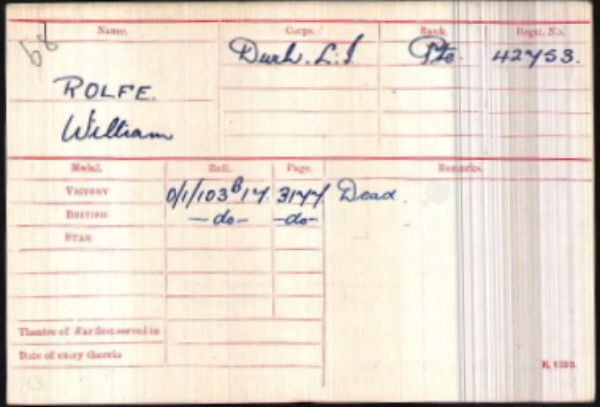 Name. Corps. Rank. Regtl. No.
68
Durh. L.I. Pte. 42753.
ROLFE.
William
Medal. Roll. Page. Remarks.
VICTORY 0/1/103B17. 3177 Dead.
BRITISH —do— —do—
STAR
Theatre of War first served in
Date of entry therein
K. 1380.